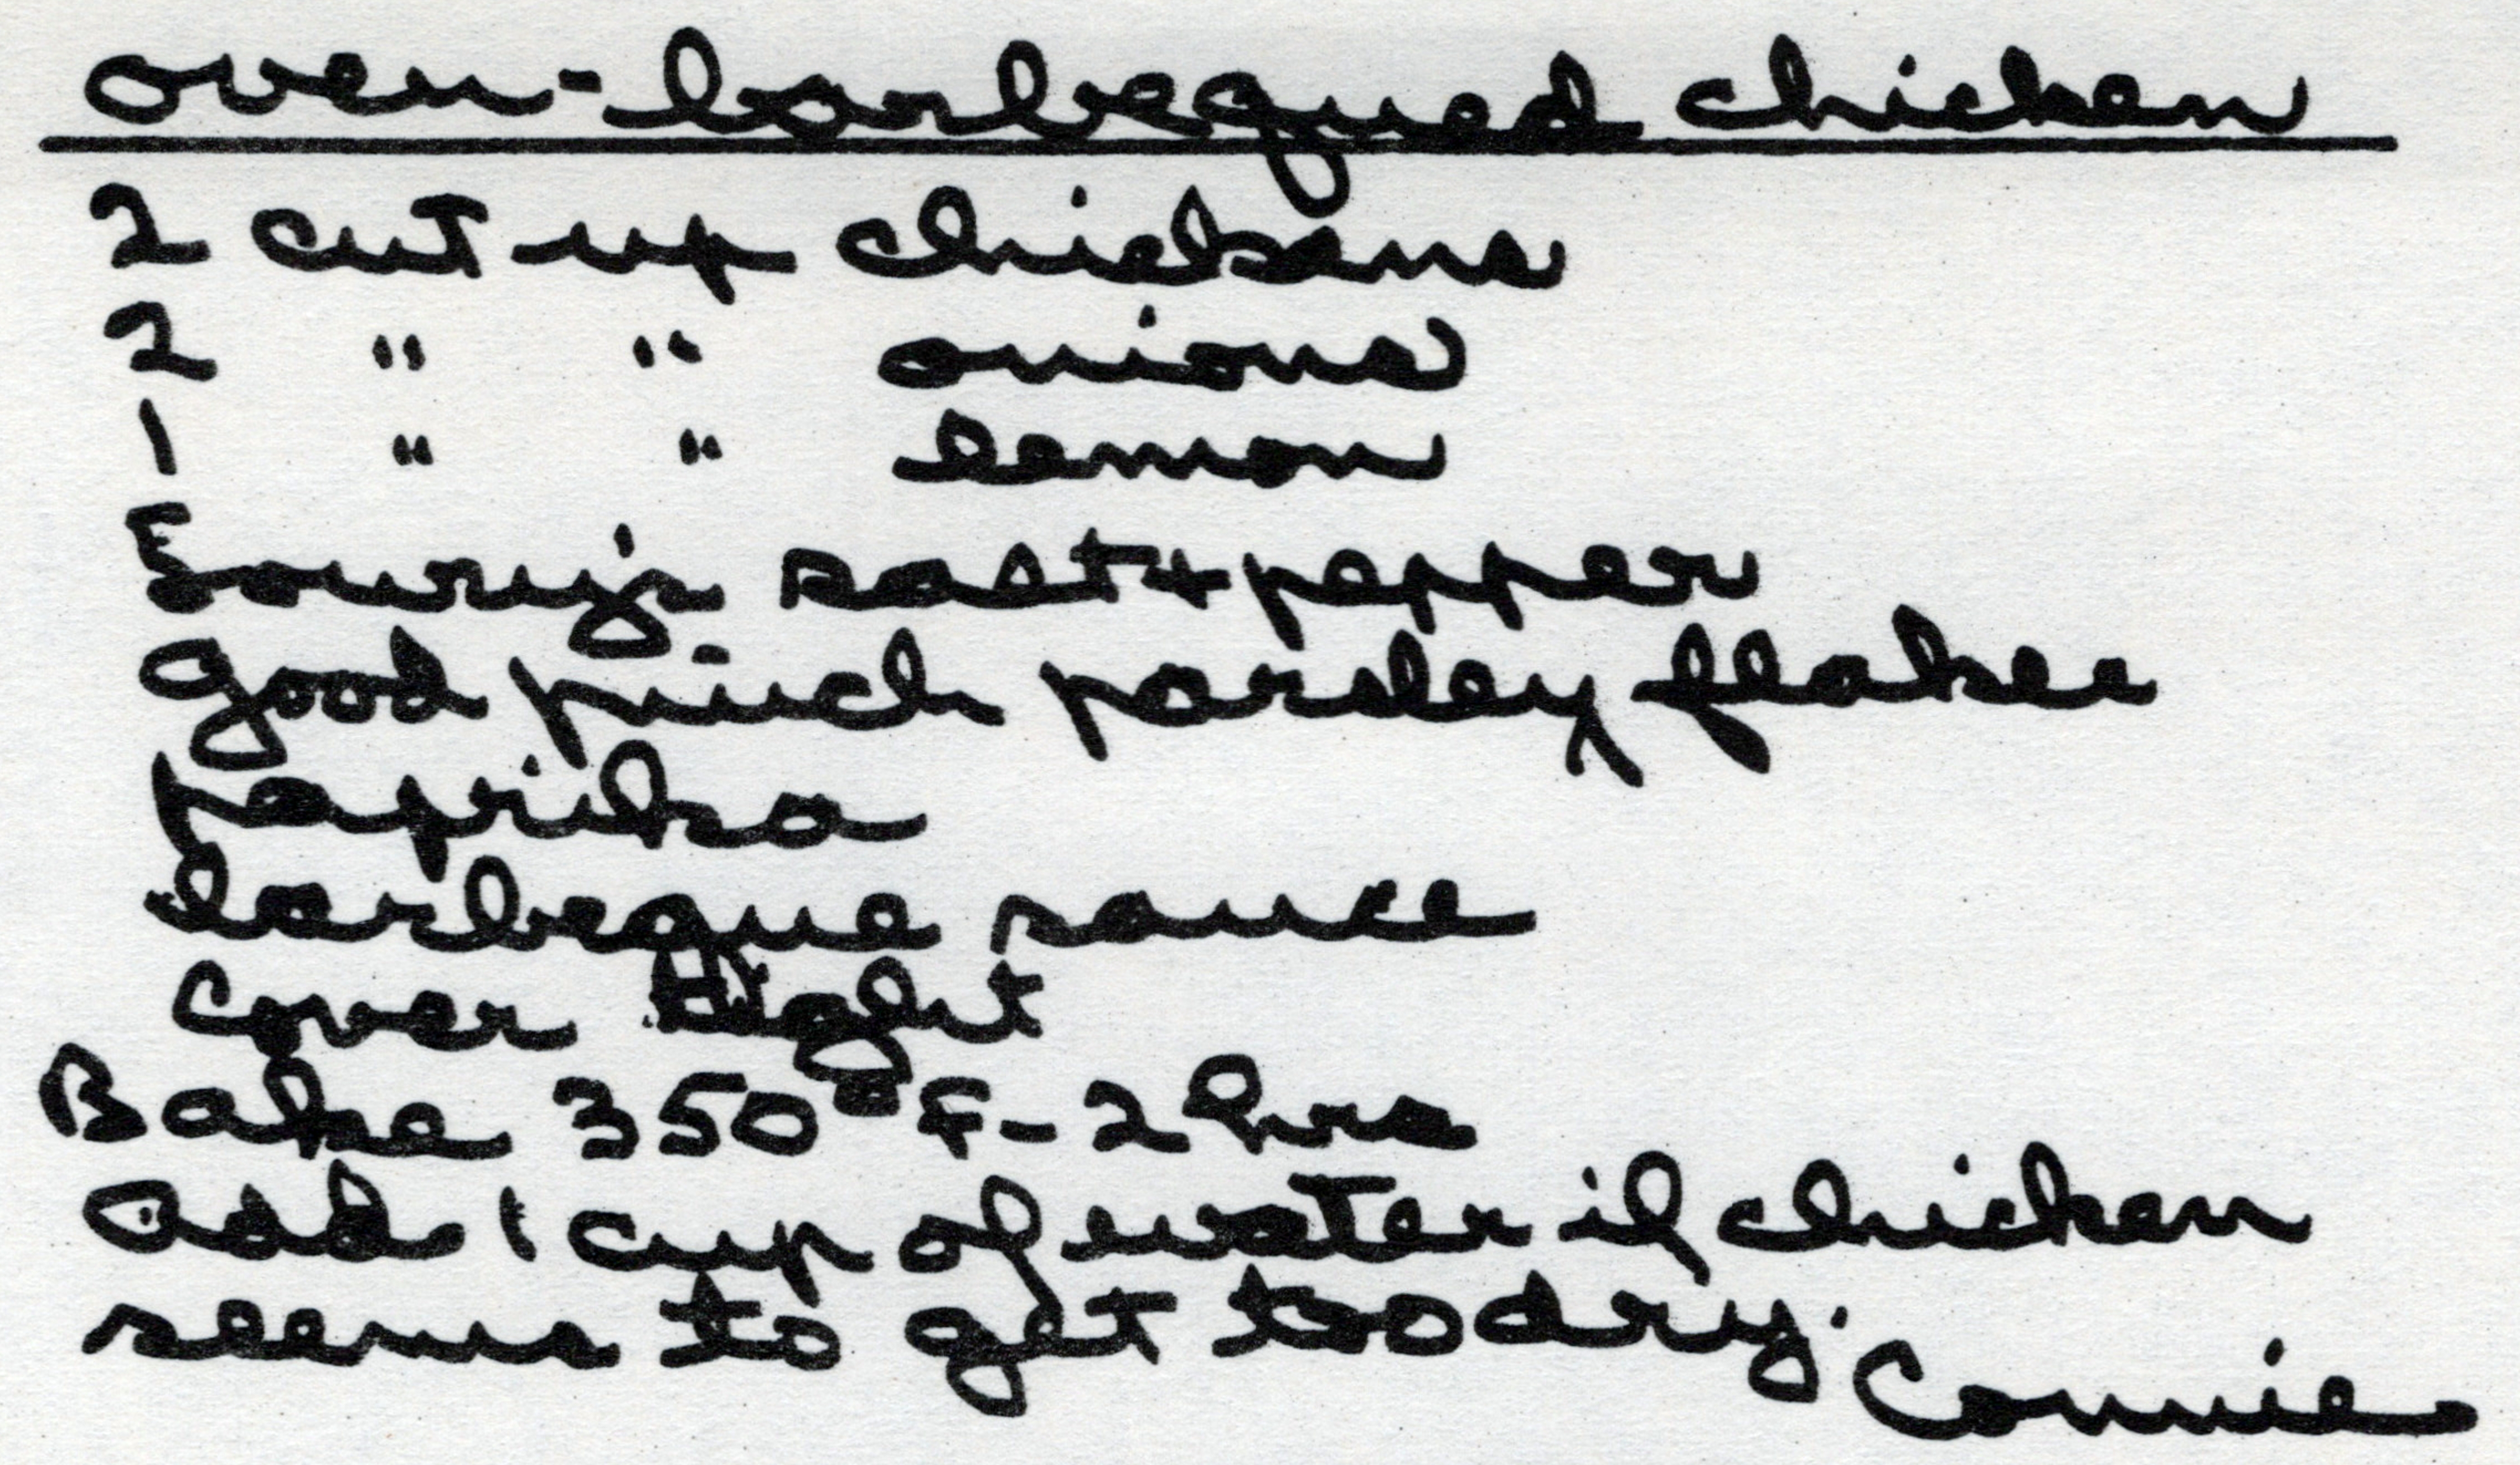 oven-barbequed chicken
2 cut up chickens
2 " " onions
1 " " lemon
Lowry's salt + pepper
Good pinch parsley flakes
paprika
barbeque sauce
Cover tight
Bake 350° F - 2 hrs
Add 1 cup of water if chicken
seems to get too dry.
Connie